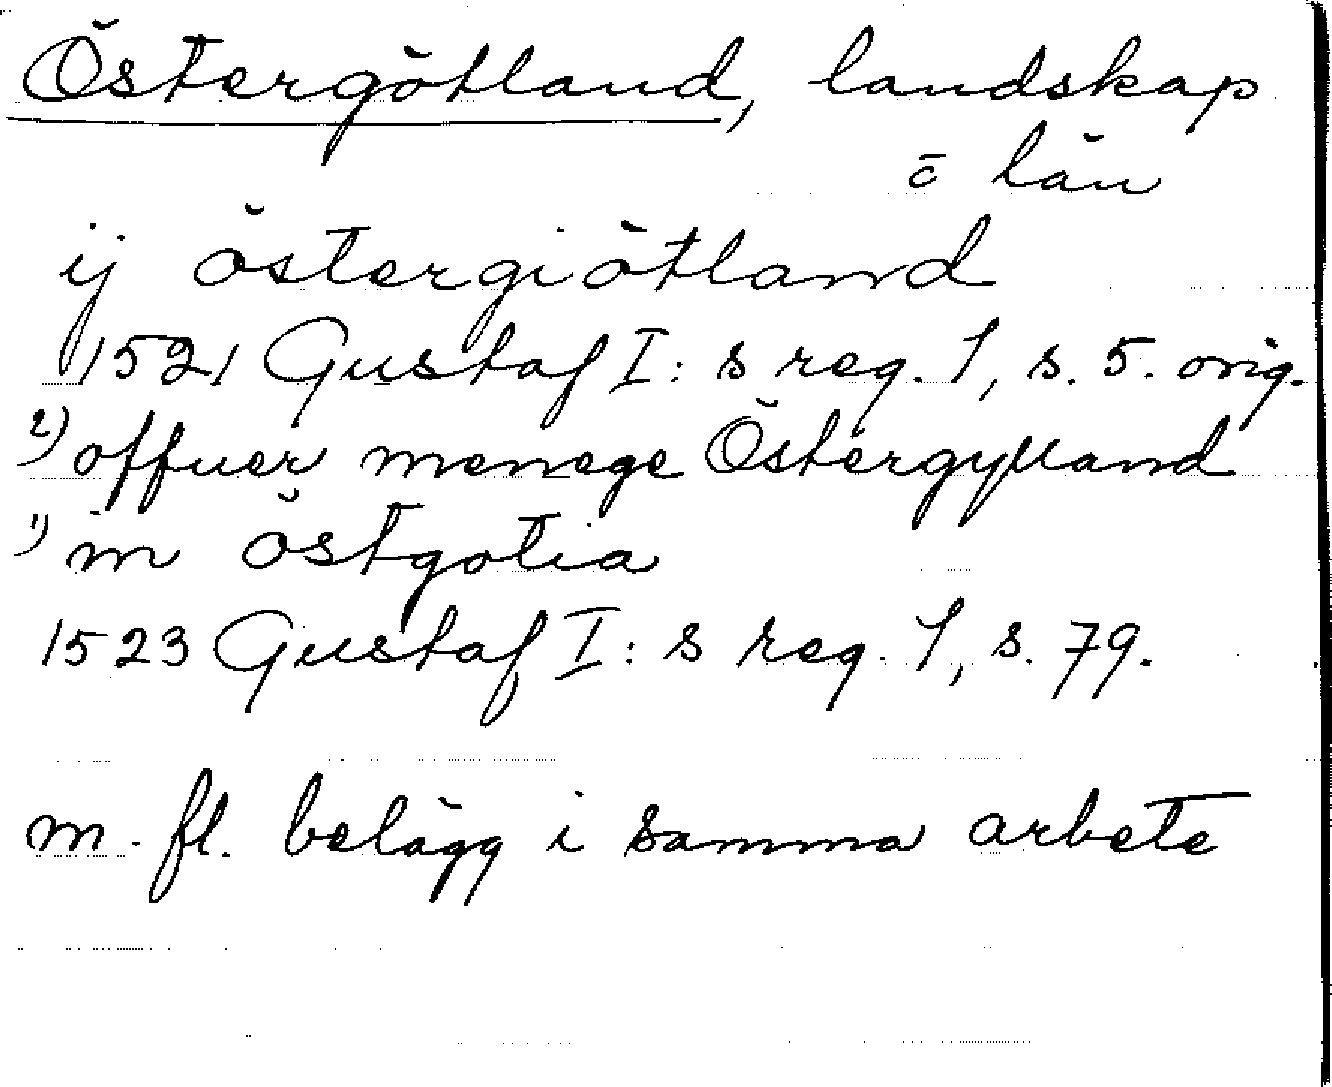 Östergötland, landskap
o län
ij östergiötland
1521 Gustaf I:s reg. 1, s. 5. orig.
2) offuer menege Östergylland
1) in östgotia
1523 Gustaf I:s reg. 1, s. 79.
m. fl. belägg i samma arbete